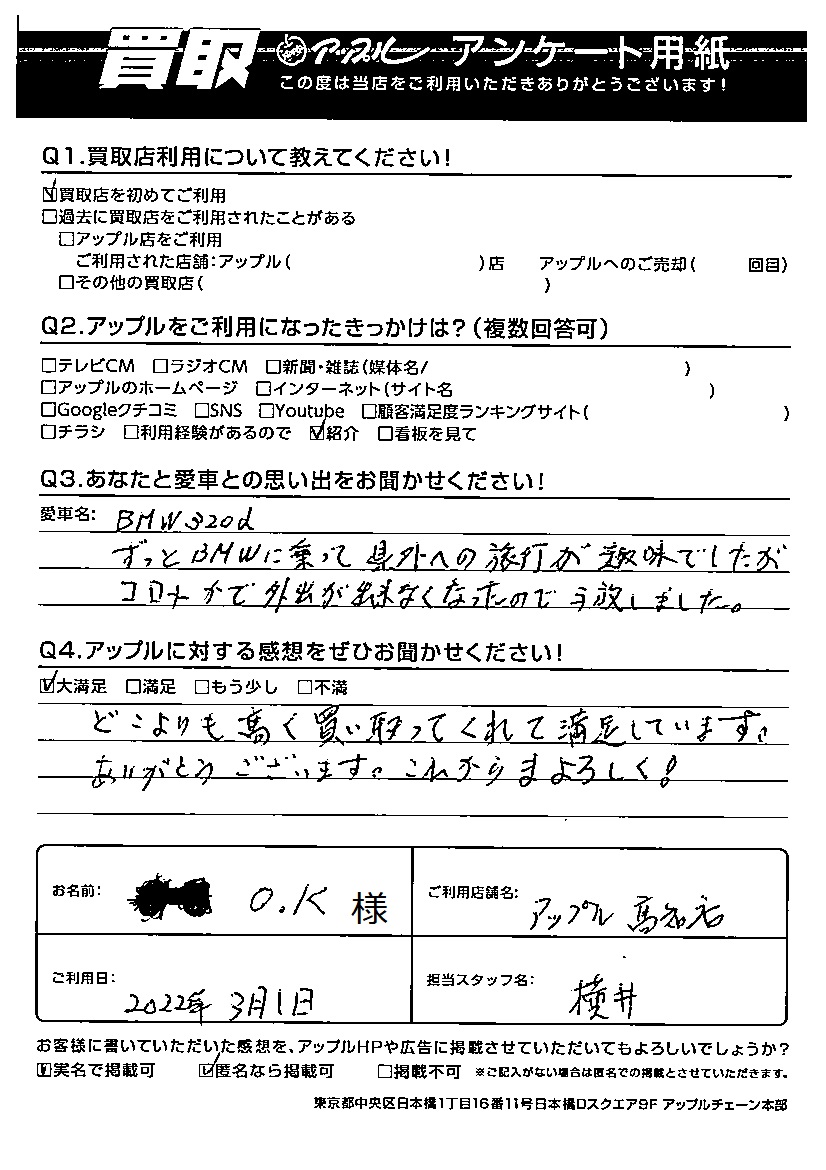 買取 アップル アンケート用紙
この度は当店をご利用いただきありがとうございます!
Q1.買取店利用について教えてください!
☑買取店を初めてご利用
□過去に買取店をご利用されたことがある
□アップル店をご利用
ご利用された店舗:アップル( )店 アップルへのご売却( 回目)
□その他の買取店( )
Q2.アップルをご利用になったきっかけは?(複数回答可)
□テレビCM □ラジオCM □新聞・雑誌(媒体名/ )
□アップルのホームページ □インターネット(サイト名 )
□Googleクチコミ □SNS □Youtube □顧客満足度ランキングサイト( )
□チラシ □利用経験があるので ☑紹介 □看板を見て
Q3.あなたと愛車との思い出をお聞かせください!
愛車名: BMW320d
ずっとBMWに乗って県外への旅行が趣味でしたが
コロナかで外出が出来なくなったので手放しました。
Q4.アップルに対する感想をぜひお聞かせください!
☑大満足 □満足 □もう少し □不満
どこよりも高く買い取ってくれて満足しています。
ありがとうございます。これからまよろしく!
お名前: O.K 様
ご利用店舗名: アップル 高知店
ご利用日: 2022年3月1日
担当スタッフ名: 横井
お客様に書いていただいた感想を、アップルHPや広告に掲載させていただいてもよろしいでしょうか?
☑実名で掲載可 ☑匿名なら掲載可 □掲載不可 ※ご記入がない場合は匿名での掲載とさせていただきます。
東京都中央区日本橋1丁目16番11号日本橋Dスクエア9F アップルチェーン本部